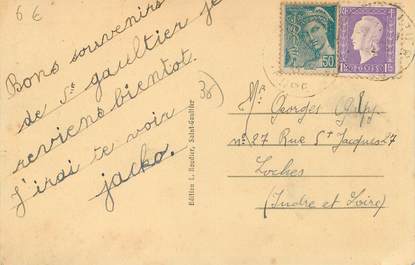 6 €
Bons souvenirs
de St gaultier je
reviens bientot.
J'irai te voir
jacko.
36
Edition L. Roudier, Saint-Gaultier
50
RF
POSTES
Mr Georges
n° 27 Rue St Jacques 27
Loches
(Indre et Loire)